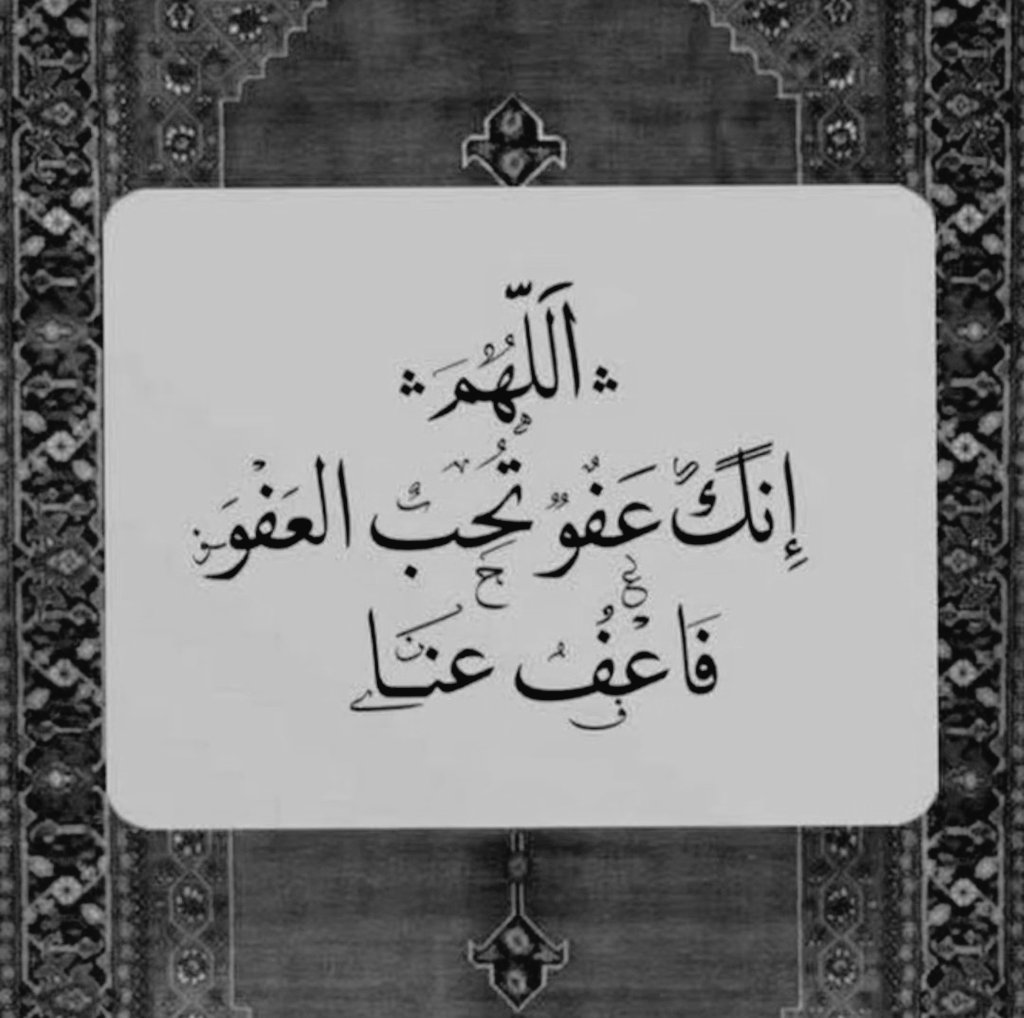 اَللّٰهُمَ
إِنكَ عَفُوٌ تُحِبُ العَفْوَ
فَاعْفُ عنَا